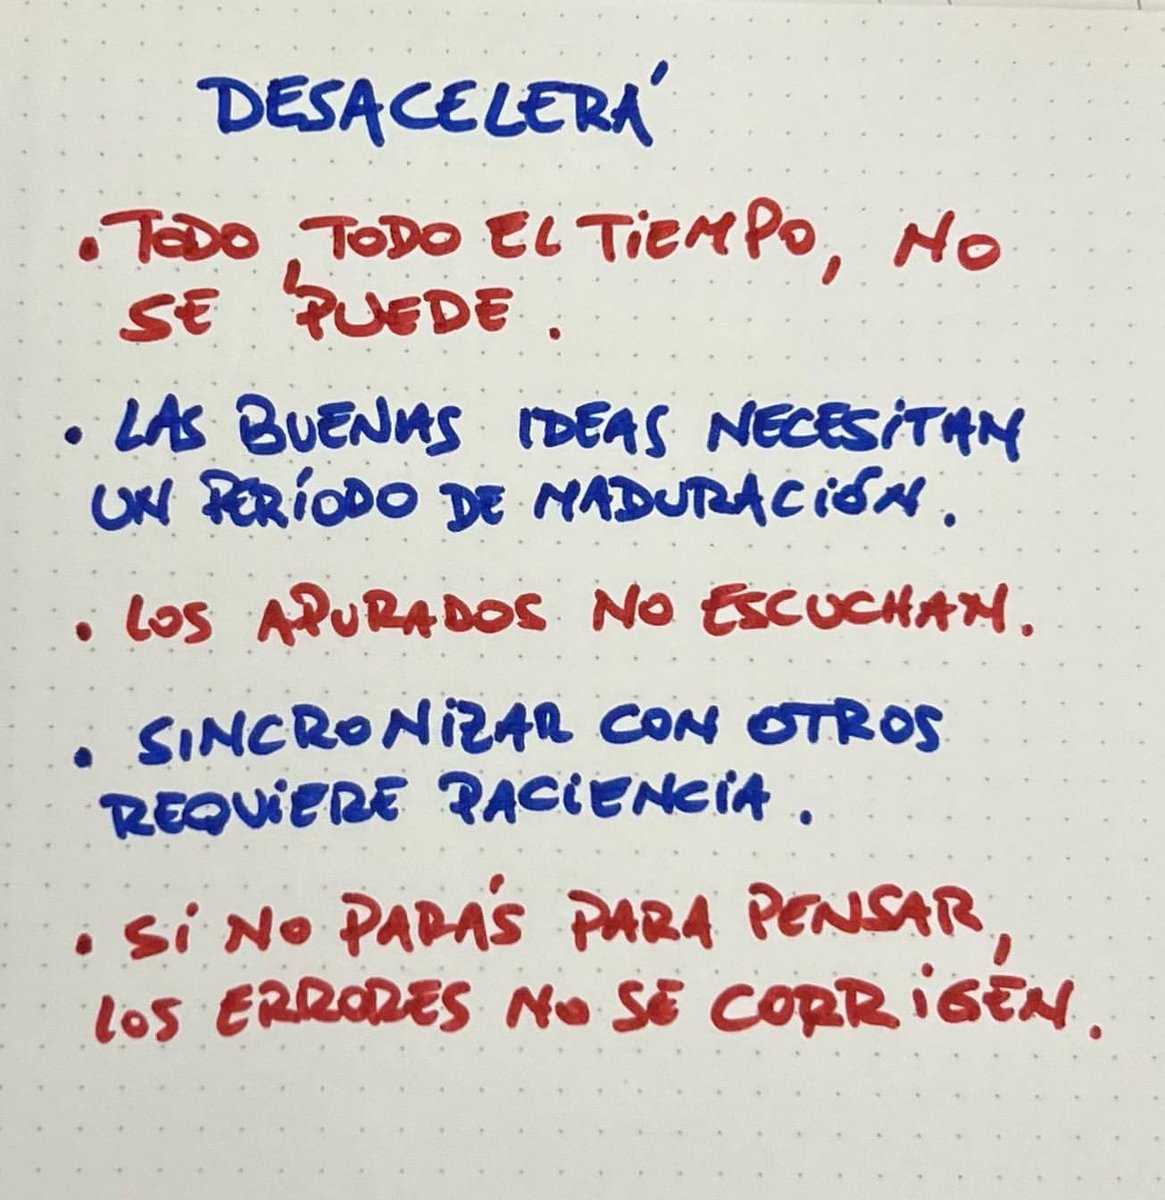 DESACELERÁ
• TODO, TODO EL TIEMPO, NO
SE PUEDE.
• LAS BUENAS IDEAS NECESITAN
UN PERÍODO DE MADURACIÓN.
• LOS APURADOS NO ESCUCHAN.
• SINCRONIZAR CON OTROS
REQUIERE PACIENCIA.
• SI NO PARÁS PARA PENSAR,
LOS ERRORES NO SE CORRIGEN.